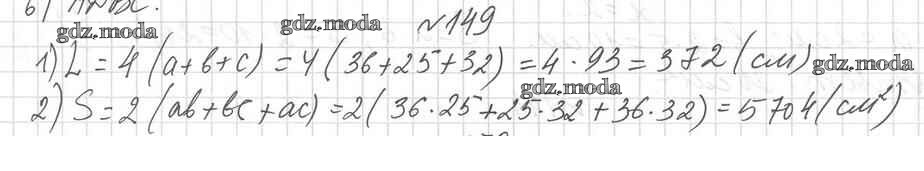 б)
№149
gdz.moda gdz.moda
1) L = 4 (a+b+c) = 4 ( 36+25+32) = 4 · 93 = 372 (см) gdz.moda
gdz.moda
2) S = 2 (ab+bc+ac) = 2( 36·25+25·32+36·32) = 5704 (см²)